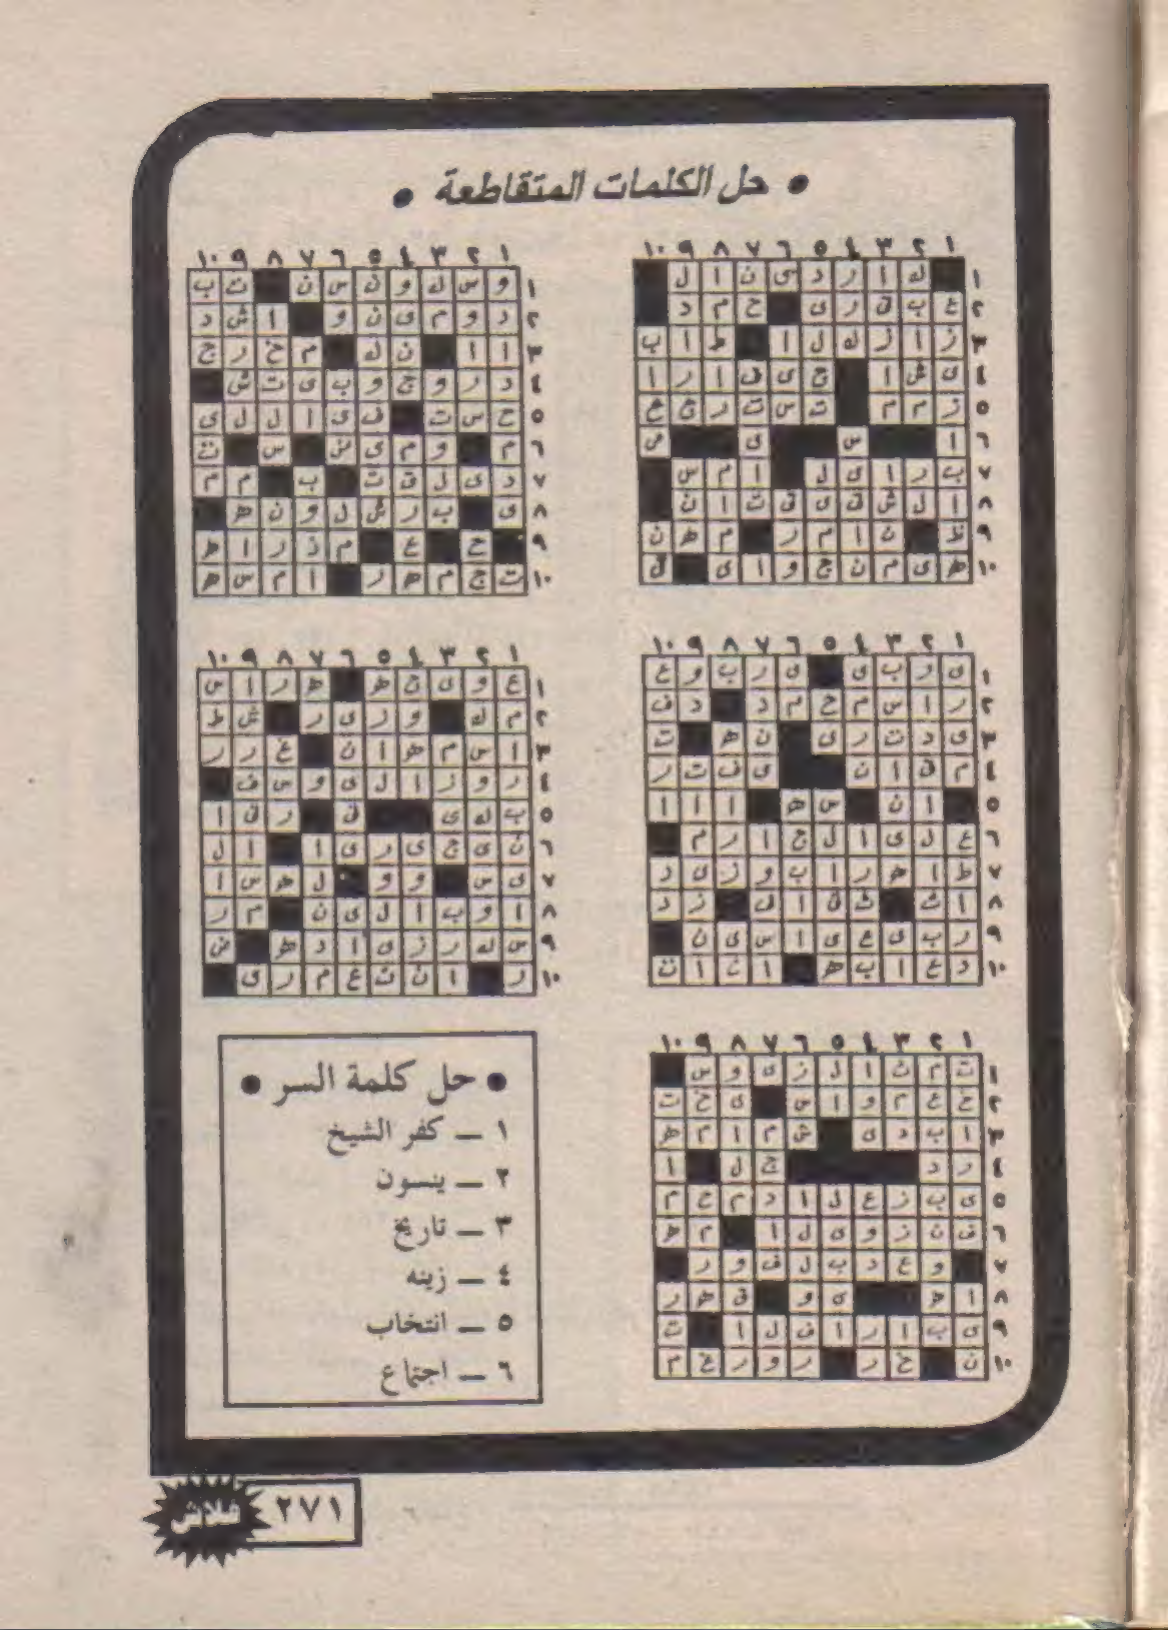 • حل الكلمات المتقاطعة •
١ ٢ ٣ ٤ ٥ ٦ ٧ ٨ ٩ ١٠
١ ك ا ر د ى ن ا ل
٢ ع ب ق ر ى ح م د
٣ ز ا ز ك ل ا ط ا ب
٤ ى ش ا ج ى ف ا ر ا
٥ ز م م ت س ت ر ج ع
٦ ا س ى ص
٧ ب ر ا ى ل ا م س
٨ ا ل ش ق ى ق ت ا ن
٩ ظ ن ا م ر م ه ن
١٠ ه ى م ن ج و ا ى ق
١ ٢ ٣ ٤ ٥ ٦ ٧ ٨ ٩ ١٠
١ و س ك و ن س ن ت ب
٢ د و م ى ن و ا ش د
٣ ا ا ن ك م خ ر ج
٤ د ر و ج و ب ى ت ش
٥ ح س ت ف ى ا ل ل ى
٦ م و م ى ض س ت
٧ د ى ل ق ت ب م م
٨ ى ب ر ش ل و ن ه
٩ ح ع م ذ ر ا ه
١٠ ت ج م ه ر ا م س ه
١ ٢ ٣ ٤ ٥ ٦ ٧ ٨ ٩ ١٠
١ ى و ب ى ى ر ب و ع
٢ ر ا س م ح م د د ف
٣ ى د ت ر ى ن ه ت
٤ م ق ا ن ى ف ت ر
٥ ا ن س ه ا ا ا
٦ ع ل ى ا ل ج ا ر م
٧ ط ا ه ر ا ب و ز ى د
٨ ا ث ث ق ا ل ز د
٩ ر ب ى ع ى ا س ى ن
١٠ د ع ا ب ه ا ن ا ت
١ ٢ ٣ ٤ ٥ ٦ ٧ ٨ ٩ ١٠
١ ع و ى ج ه ه ر ا س
٢ م ك و ز ى ر ش ط
٣ ا س م ه ا ن غ ر ر
٤ ر و ز ا ل ى و س ف
٥ ب ك ى ق ر ق ا
٦ ن ى ج ى ر ى ا ا ل
٧ ى س و و ل ه س ا
٨ ا و ب ا ل ى ن م ر
٩ س ك ر ز ى ا د ه ض
١٠ ر ا ن ت ع م ر ى
١ ٢ ٣ ٤ ٥ ٦ ٧ ٨ ٩ ١٠
١ ت م ن ا ل ز ى و س
٢ خ ع م و ا س ى خ ت
٣ ا ب د ى ش م ا م ه
٤ ر د ج ل ا
٥ ى ب ز ع ل ا د م ح م
٦ ف ن ز و ى ل ا م ه
٧ و ع د ب ل ف و ر
٨ ا ه ى و ق ه ر
٩ ى ب ا ر ا ن ل ا ت
١٠ ن خ ر ر و ر ع م
• حل كلمة السر •
١ — كفر الشيخ
٢ — ينسون
٣ — تاريخ
٤ — زينه
٥ — انتخاب
٦ — اجتماع
٢٧١
فلاش